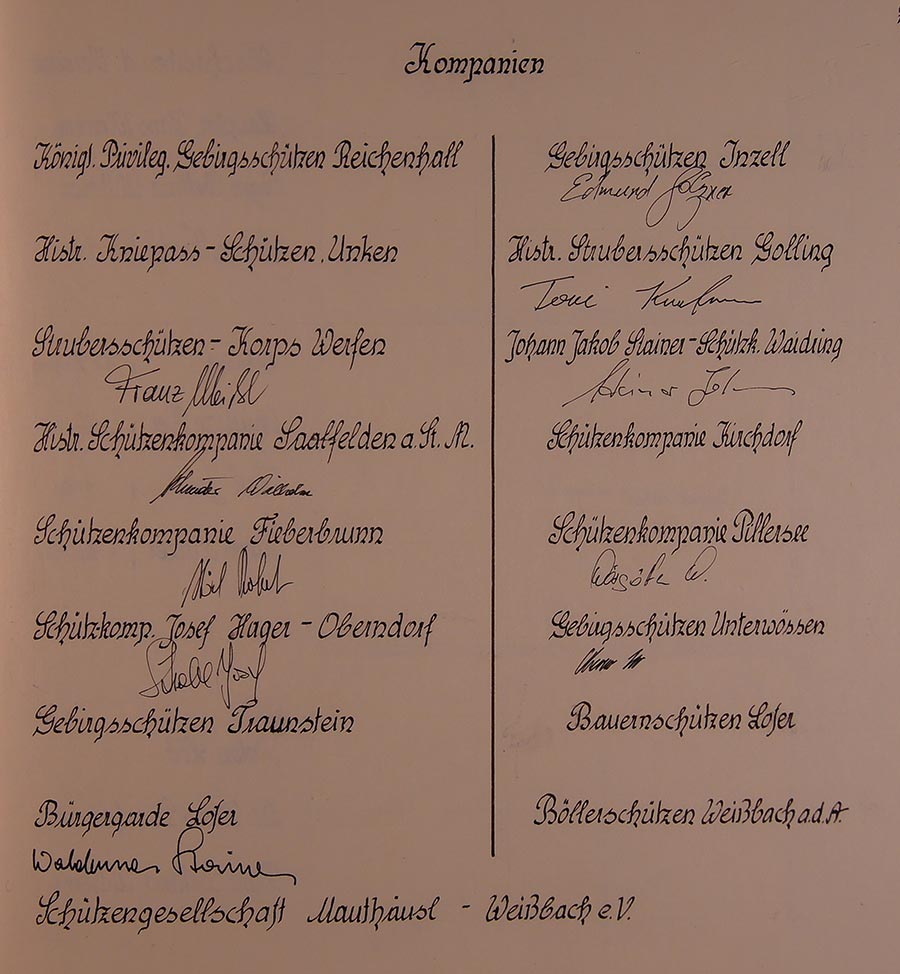 Kompanien
Königl. Privileg. Gebirgsschützen Reichenhall
Histr. Kniepass-Schützen, Unken
Strubersschützen-Korps Werfen
Franz Meißl
Histr. Schützenkompanie Saalfelden a. St. M.
Wilhelm
Schützenkompanie Fieberbrunn
Schützkomp. Josef Hager - Oberndorf
Josef
Gebirgsschützen Traunstein
Bürgergarde Lofer
Gebirgsschützen Inzell
Edmund
Histr. Strubersschützen Golling
Toni
Johann Jakob Stainer-Schützk. Waidring
Schützenkompanie Kirchdorf
Schützenkompanie Pillersee
W.
Gebirgsschützen Unterwössen
Bauernschützen Lofer
Böllerschützen Weißbach a.d.A.
Schützengesellschaft Mauthäusl - Weißbach e.V.